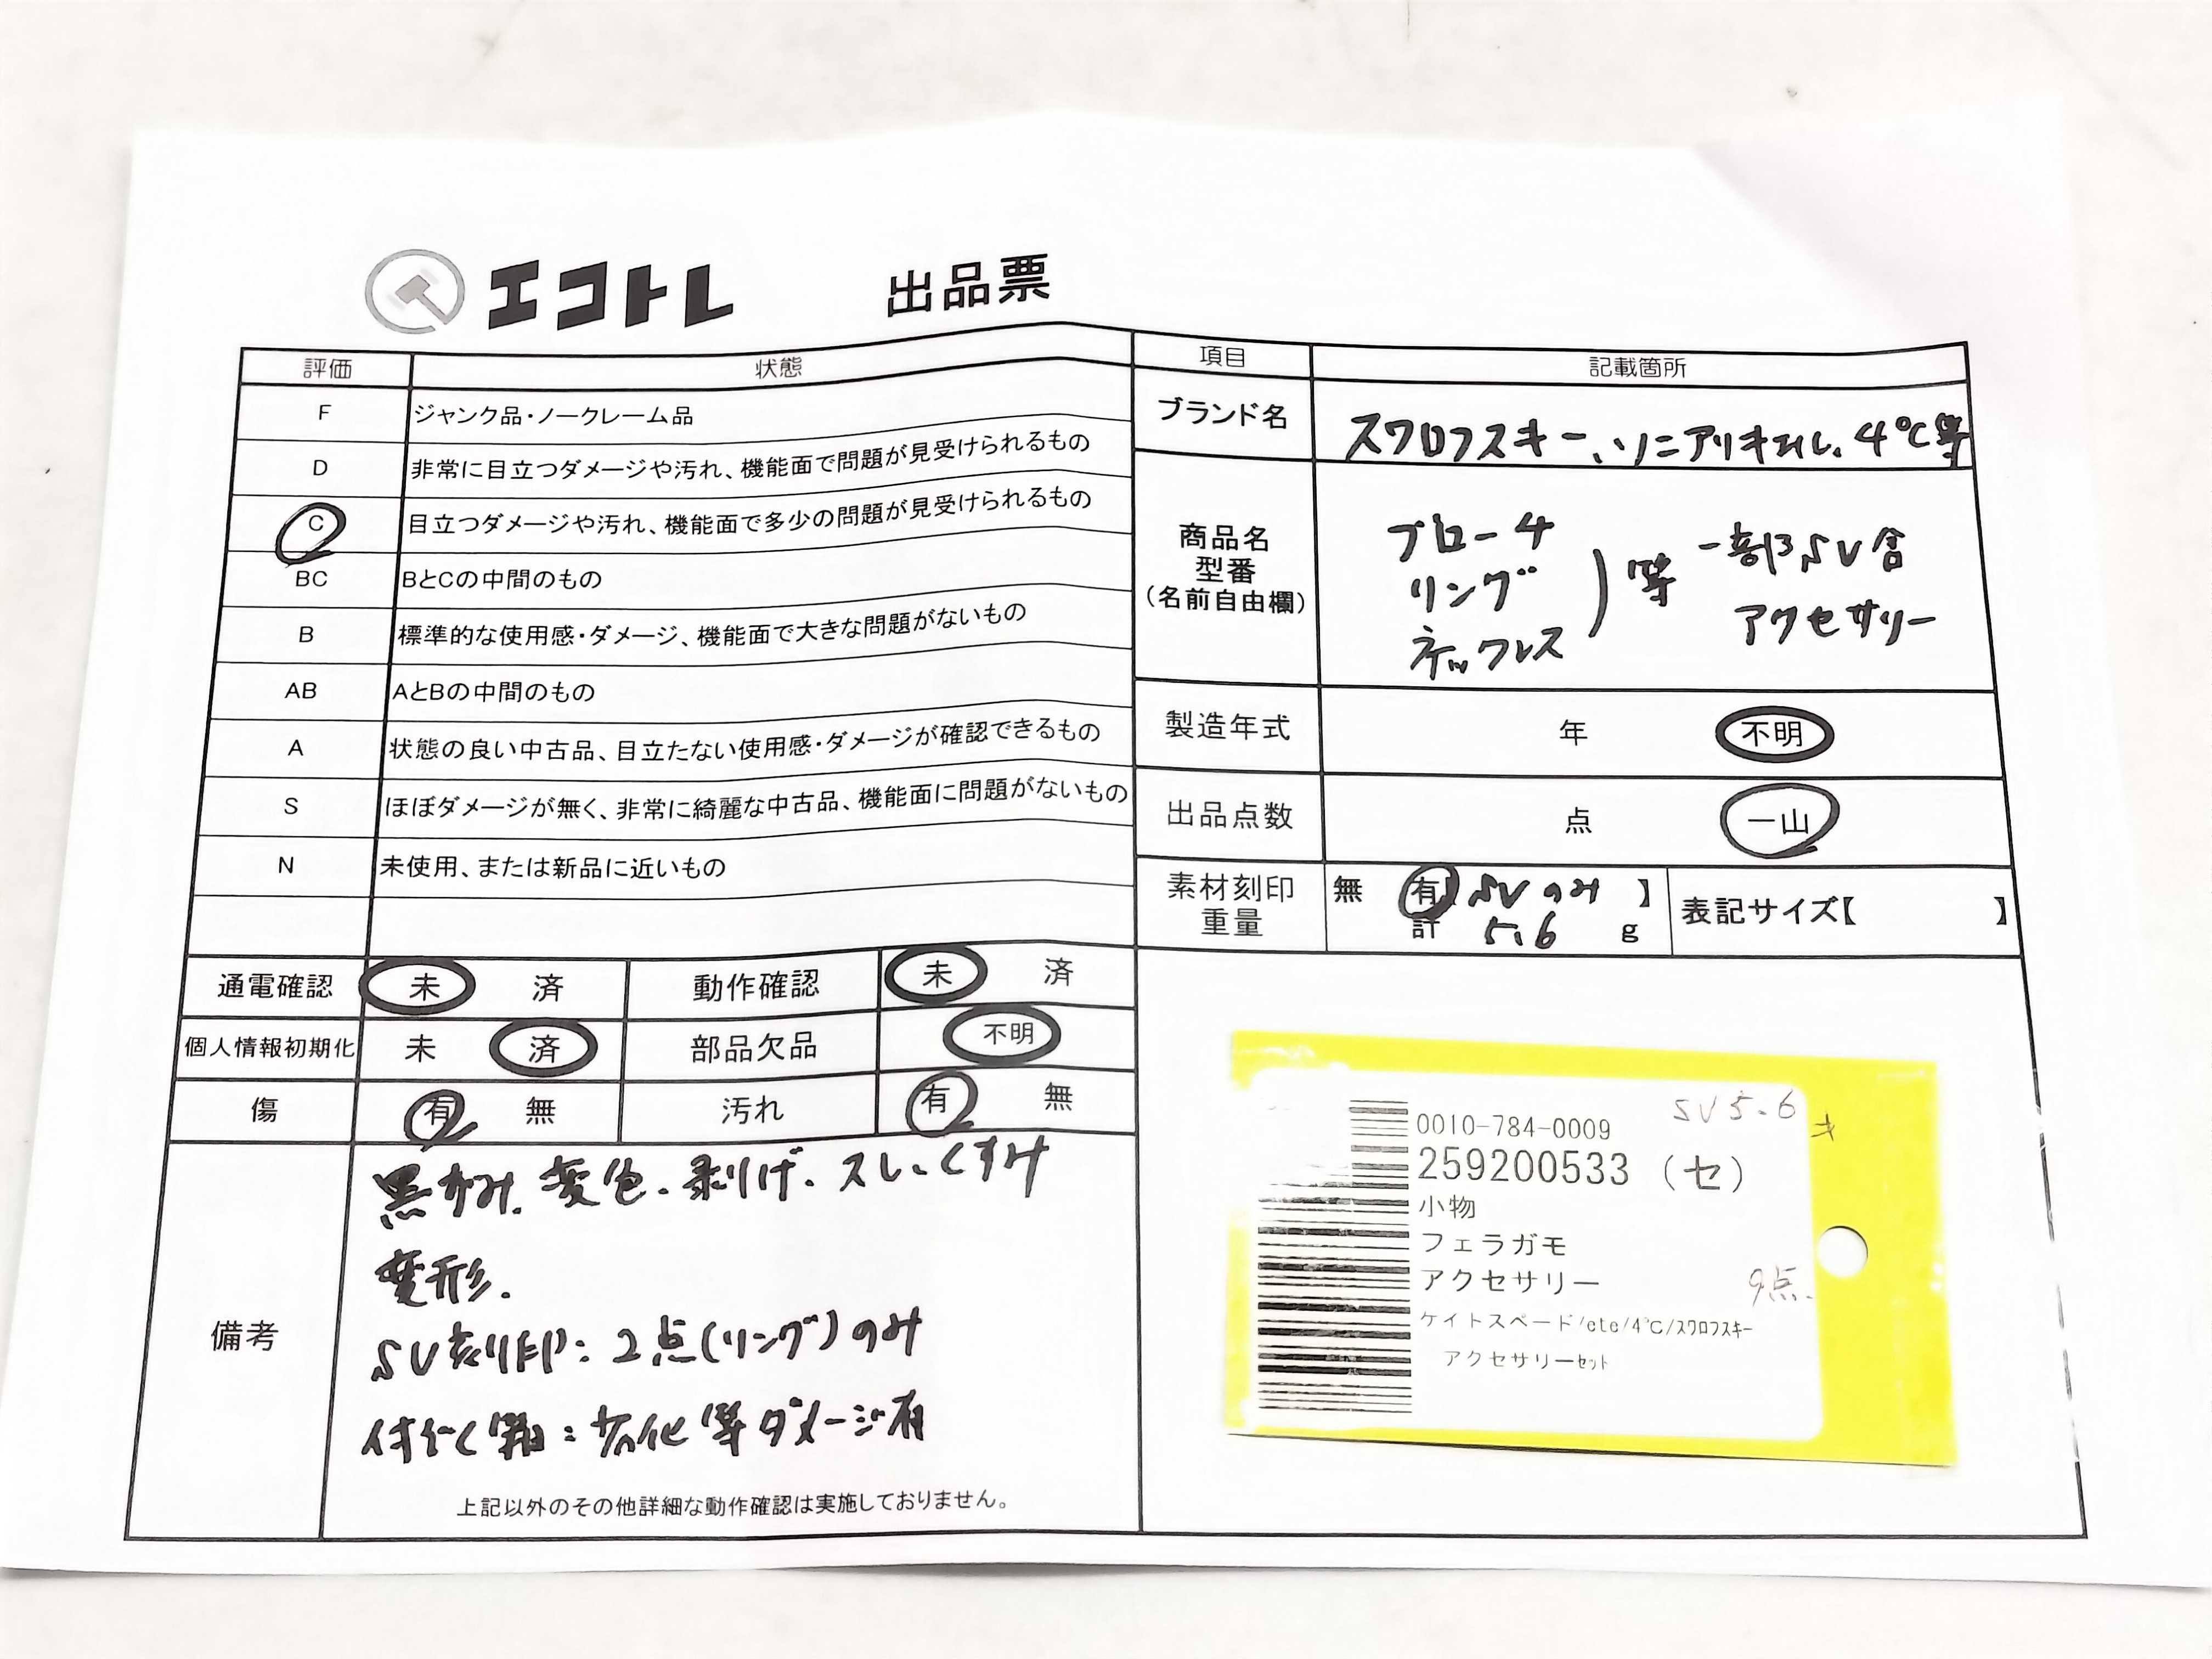 エコトレ 出品票
評価 状態
F ジャンク品・ノークレーム品
D 非常に目立つダメージや汚れ、機能面で問題が見受けられるもの
C 目立つダメージや汚れ、機能面で多少の問題が見受けられるもの
BC BとCの中間のもの
B 標準的な使用感・ダメージ、機能面で大きな問題がないもの
AB AとBの中間のもの
A 状態の良い中古品、目立たない使用感・ダメージが確認できるもの
S ほぼダメージが無く、非常に綺麗な中古品、機能面に問題がないもの
N 未使用、または新品に近いもの
通電確認 未 済 動作確認 未 済
個人情報初期化 未 済 部品欠品 不明
傷 有 無 汚れ 有 無
備考
黒ずみ、変色、剥げ、スレ、くすみ
変形.
SV刻印:2点(リング)のみ
付属箱:劣化等ダメージ有
上記以外のその他詳細な動作確認は実施しておりません。
項目 記載箇所
ブランド名 スワロフスキー、ソニアリキエル、4℃等
商品名
型番
(名前自由欄)
ブローチ
リング
ネックレス
等 一部SV含
アクセサリー
製造年式 年 不明
出品点数 点 一山
素材刻印
重量
無 有【SVのみ 】
計 5.6 g
表記サイズ【 】
SV5.6
0010-784-0009
259200533 (セ)
小物
フェラガモ
アクセサリー 9点.
ケイトスペード/etc/4℃/スワロフスキー
アクセサリーセット